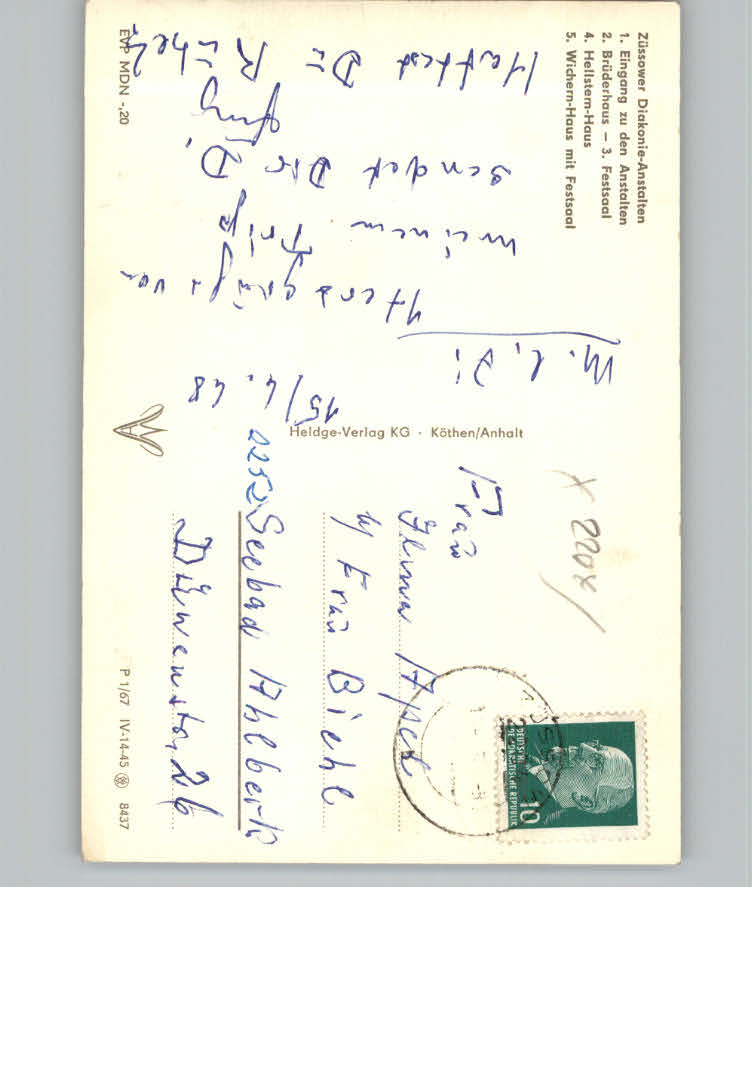 Züssower Diakonie-Anstalten
1. Eingang zu den Anstalten
2. Brüderhaus – 3. Festsaal
4. Hellstern-Haus
5. Wichern-Haus mit Festsaal
15/4. 68
M. l. D!
Herzgrüße von
meinem
sendet Dir D.
Hattest Du
EVP MDN -,20
Heldge-Verlag KG · Köthen/Anhalt
x 2204
Frau
Irma Apel
b/ Frau Biehl
2252 Seebad Ahlbeck
Dünenstr. 26
DEUTSCHE
DEMOKRATISCHE REPUBLIK
10
P 1/67 IV-14-45 8437